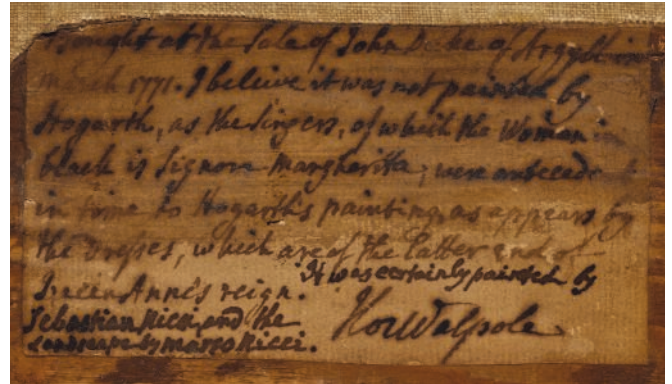 Bought at the Sale of John Duke of Argyll in
March 1771. I beleive it was not painted by
Hogarth, as the Singers, of which the Woman in
black is Signora Margheritta, were antecedent
in time to Hogarth's painting, as appears by
the Dresses, which are of the latter end of
Queen Anne's reign. It was certainly painted by
Sebastian Ricci, and the
Landscape by Marco Ricci.
Hor Walpole.